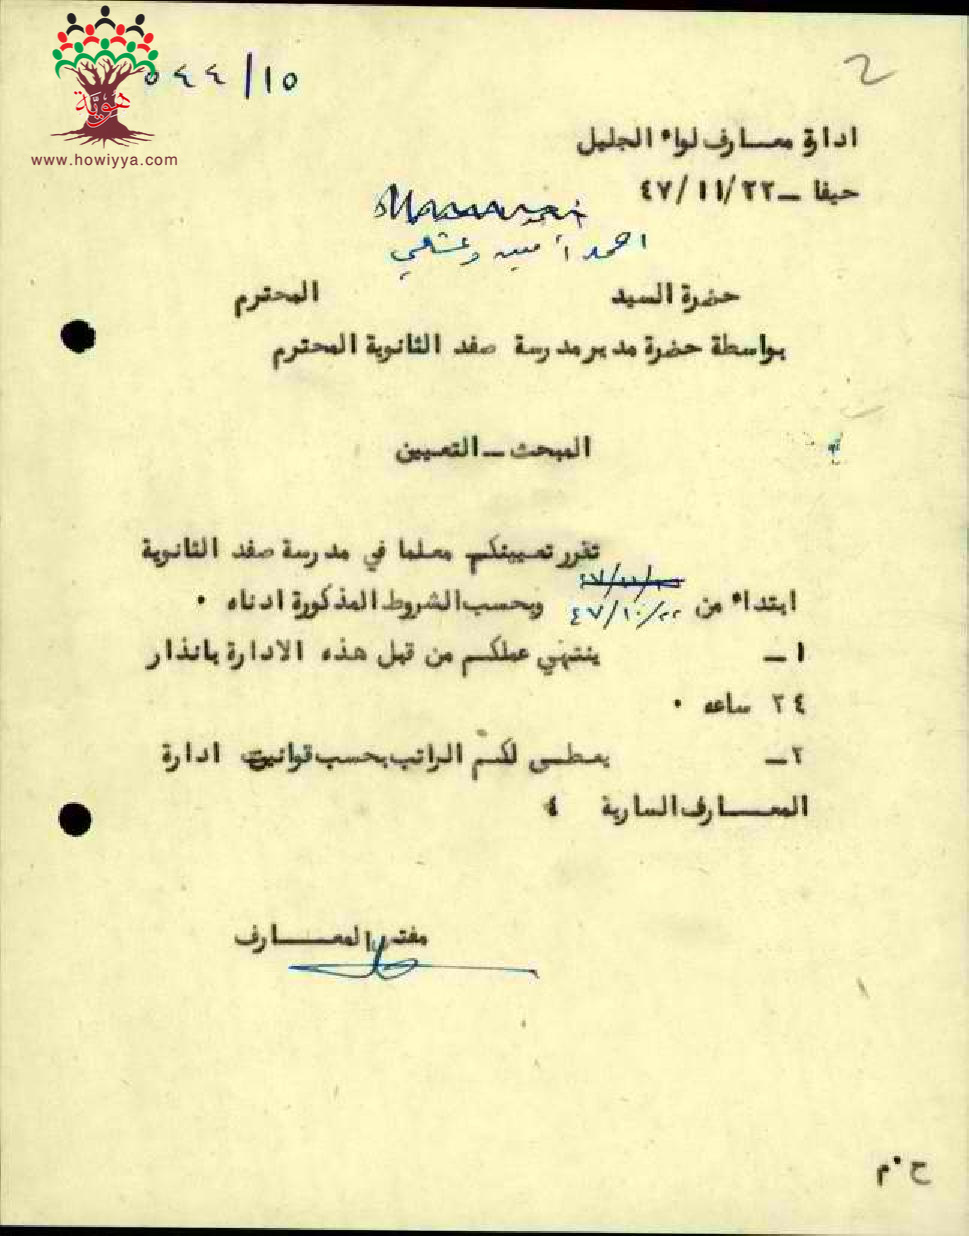 هوية
www.howiyya.com
٥٤٤/١٥
2
ادارة معارف لواء الجليل
حيفا - ٤٧/١١/٢٢
احمد أمين
حضرة السيد المحترم
بواسطة حضرة مدير مدرسة صفد الثانوية المحترم
المبحث - التعيين
تقرر تعيينكم معلما في مدرسة صفد الثانوية
ابتداء من ٤٧/١٠/٢٢ وبحسب الشروط المذكورة ادناه ٠
١- ينتهي عملكم من قبل هذه الادارة بانذار
٢٤ ساعه ٠
٢- يعطى لكم الراتب بحسب قوانين ادارة
المعارف السارية ٤
مفتش المعارف
ح٠م